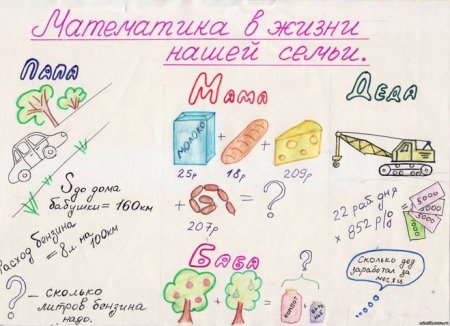 Математика в жизни
нашей семьи.
Папа
S до дома
бабушки = 160км
Расход бензина
= 8л на 100км
? — сколько
литров бензина
надо.
Мама
МОЛОКО
25р + 18р + 209р
+ 207р = ?
Баба
+ = ?
КОМПОТ +
Деда
22 раб дня
× 852 р/д
5000
5000
5000
Сколько дед
заработал за
месяц